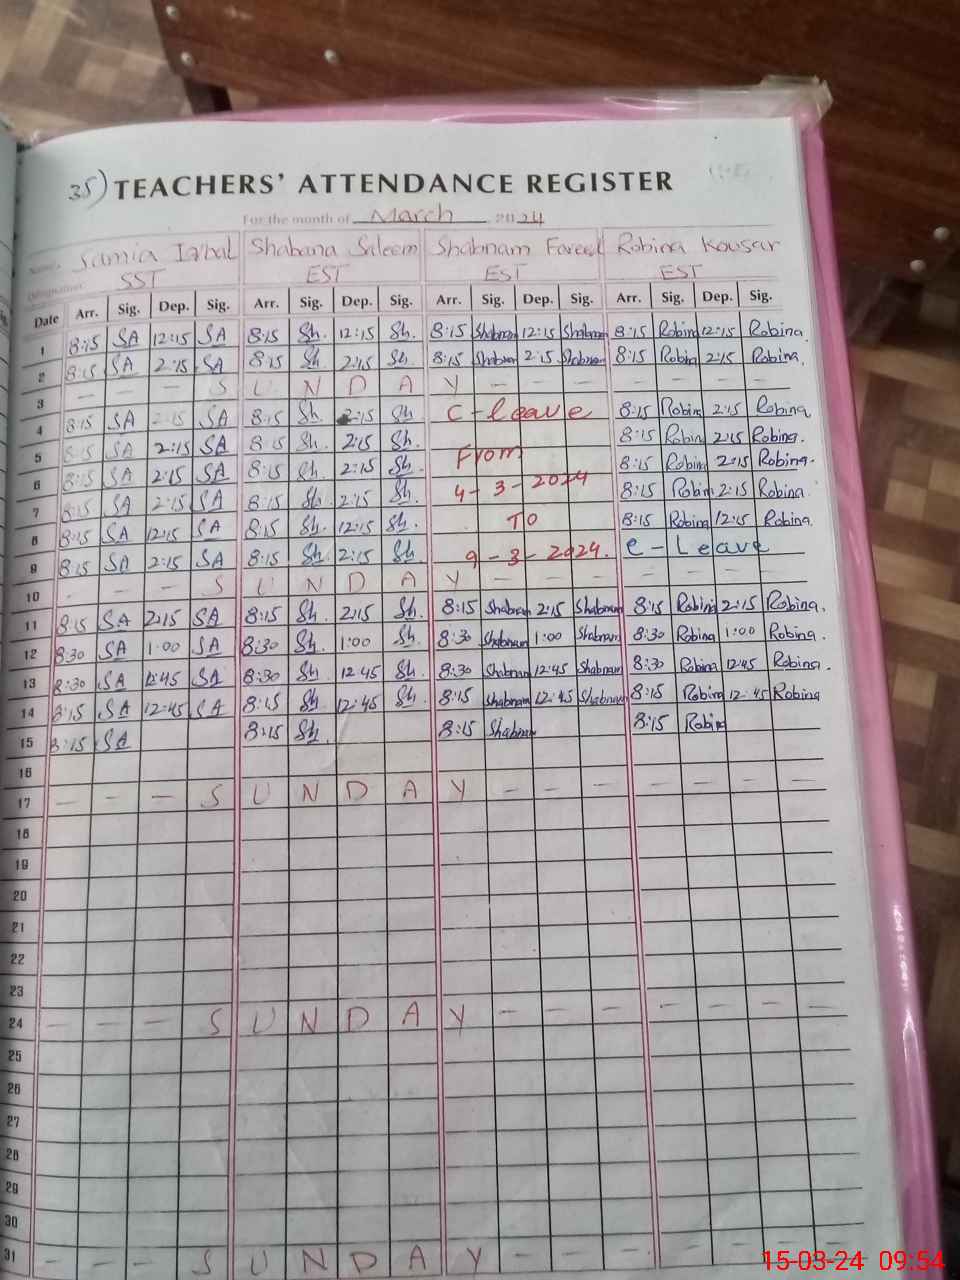 35) TEACHERS' ATTENDANCE REGISTER
For the month of March 2024
Name Samia Iqbal Shabana Saleem Shabnam Fareed Robina Kousar
Designation SST EST EST EST
Date Arr. Sig. Dep. Sig. Arr. Sig. Dep. Sig. Arr. Sig. Dep. Sig. Arr. Sig. Dep. Sig.
1 8:15 SA 12:15 SA 8:15 Sh. 12:15 Sh. 8:15 Shabnam 12:15 Shabnam 8:15 Robina 12:15 Robina
2 8:15 SA 2:15 SA 8:15 Sh 2:15 Sh 8:15 Shabnam 2:15 Shabnam 8:15 Robina 2:15 Robina.
3 - - - S U N D A Y - - - - - - -
4 8:15 SA 2:15 SA 8:15 Sh. 2:15 Sh C-leave 8:15 Robina 2:15 Robina.
5 8:15 SA 2:15 SA 8:15 Sh. 2:15 Sh. From 8:15 Robin 2:15 Robina.
6 8:15 SA 2:15 SA 8:15 Sh. 2:15 Sh. 4-3-2024 8:15 Robin 2:15 Robina.
7 8:15 SA 2:15 SA 8:15 Sh 2:15 Sh. 8:15 Robin 2:15 Robina
8 8:15 SA 12:15 SA 8:15 Sh. 12:15 Sh. TO 8:15 Robina 12:15 Robina.
9 8:15 SA 2:15 SA 8:15 Sh. 2:15 Sh. 9-3-2024. C-Leave
10 - - - S U N D A Y - - - - - - -
11 8:15 SA 2:15 SA 8:15 Sh. 2:15 Sh. 8:15 Shabnam 2:15 Shabnam 8:15 Robina 2:15 Robina.
12 8:30 SA 1:00 SA 8:30 Sh. 1:00 Sh. 8:30 Shabnam 1:00 Shabnam 8:30 Robina 1:00 Robina.
13 8:30 SA 12:45 SA 8:30 Sh. 12:45 Sh. 8:30 Shabnam 12:45 Shabnam 8:30 Robina 12:45 Robina.
14 8:15 SA 12:45 SA 8:15 Sh 12:45 Sh. 8:15 Shabnam 12:45 Shabnam 8:15 Robina 12:45 Robina
15 8:15 SA 8:15 Sh. 8:15 Shabnam 8:15 Robina
16
17 - - - S U N D A Y - - - - - - -
18
19
20
21
22
23
24 - - - S U N D A Y - - - - - - -
25
26
27
28
29
30
31 - - - S U N D A Y - - - - - - -
15-03-24 09:54